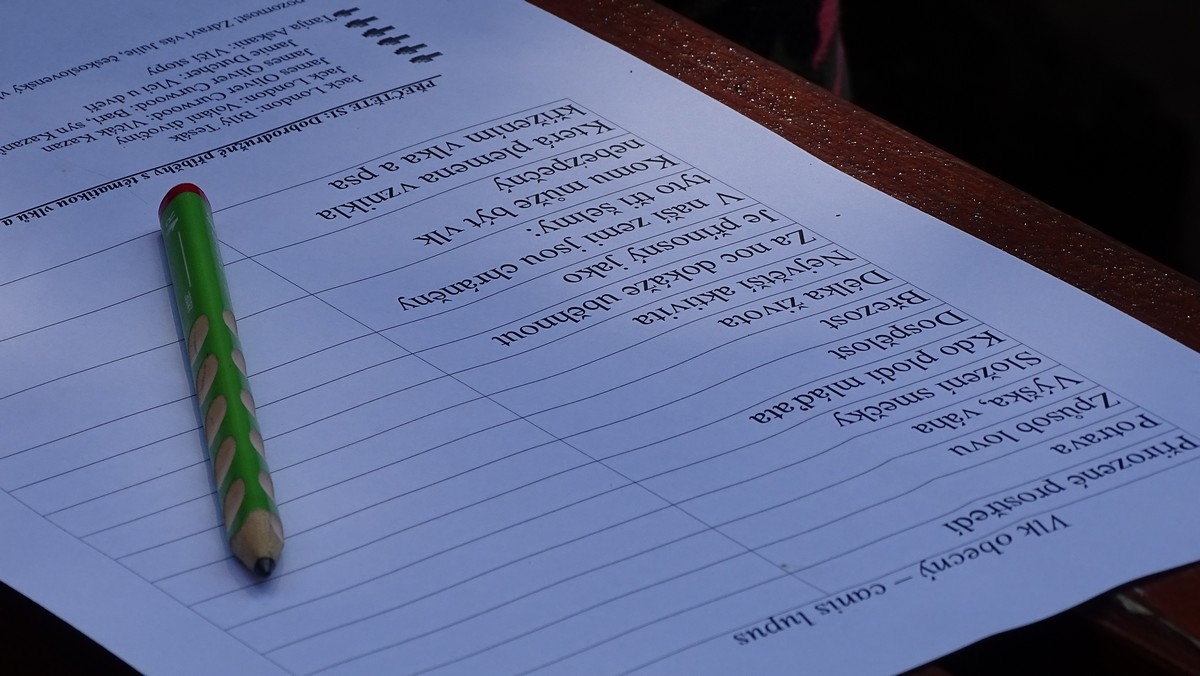 Vlk obecný – canis lupus
Přirozené prostředí
Potrava
Způsob lovu
Výška, váha
Složení smečky
Kdo plodí mláďata
Dospělost
Březost
Délka života
Největší aktivita
Za noc dokáže uběhnout
Je přínosný jako
V naší zemi jsou chráněny
tyto tři šelmy:
Komu může být vlk
nebezpečný
Která plemena vznikla
křížením vlka a psa
PŘEČTĚTE SI: Dobrodružné příběhy s tématikou vlků a
Jack London: Bílý Tesák
Jack London: Volání divočiny
James Oliver Curwood: Vlčák Kazan
James Oliver Curwood: Barí, syn Kazana
Jamie Dutcher: Vlci u dveří
Tanja Askani: Vlčí stopy
pozornost Zdraví vás Julie, československý